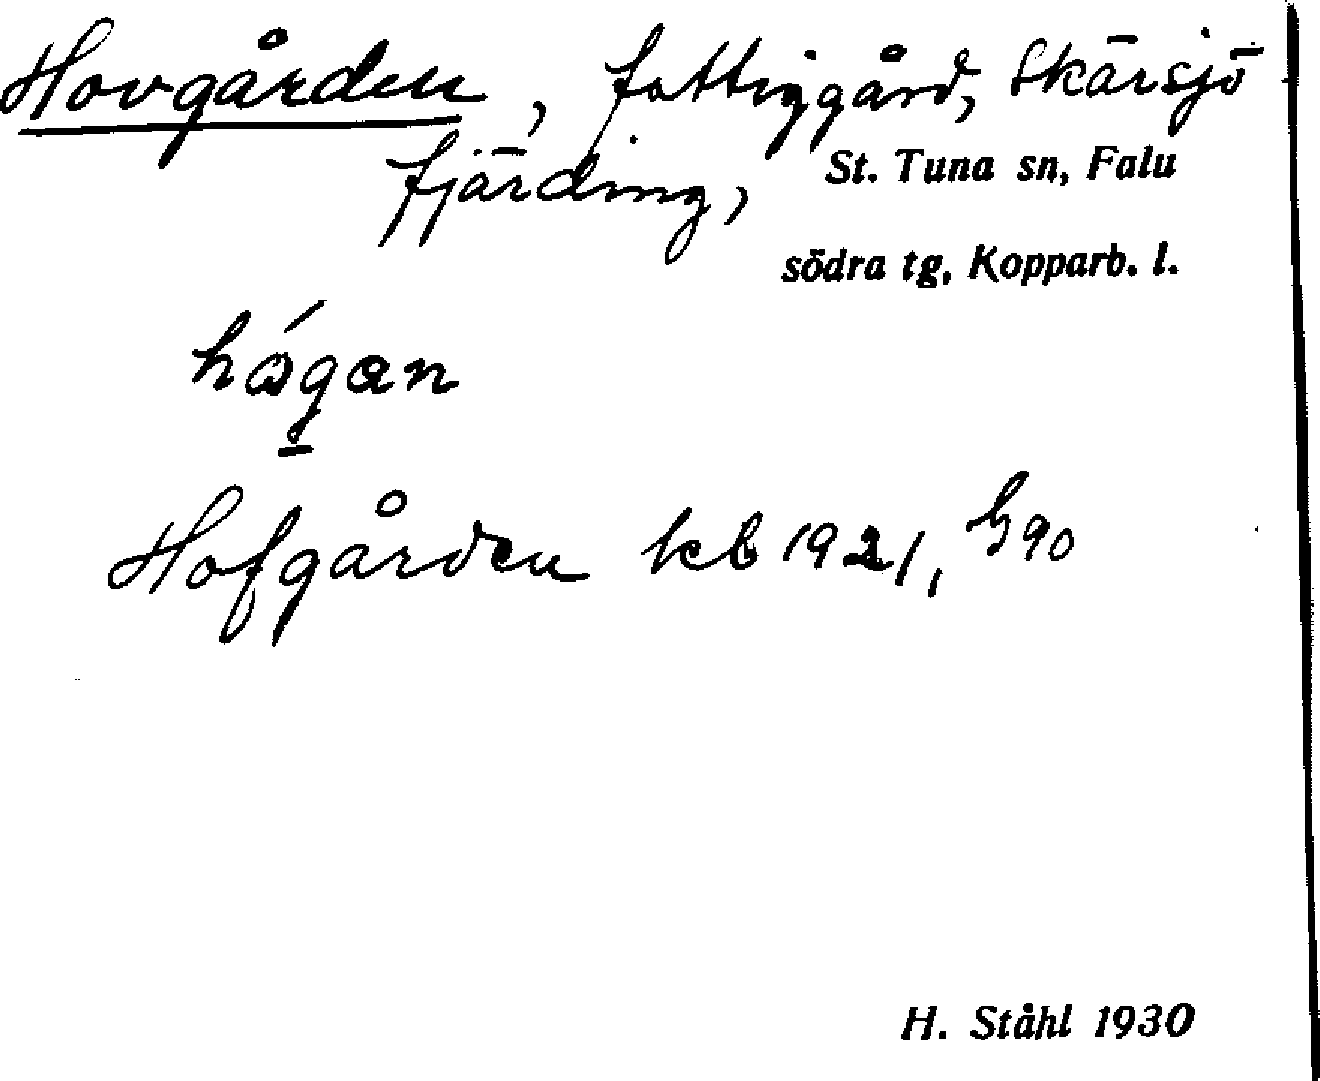 Hovgården, fattiggård, Skärsjö
fjärding, St. Tuna sn, Falu
södra tg, Kopparb. l.
hágan
Hofgården kb 1921, G 90
H. Ståhl 1930